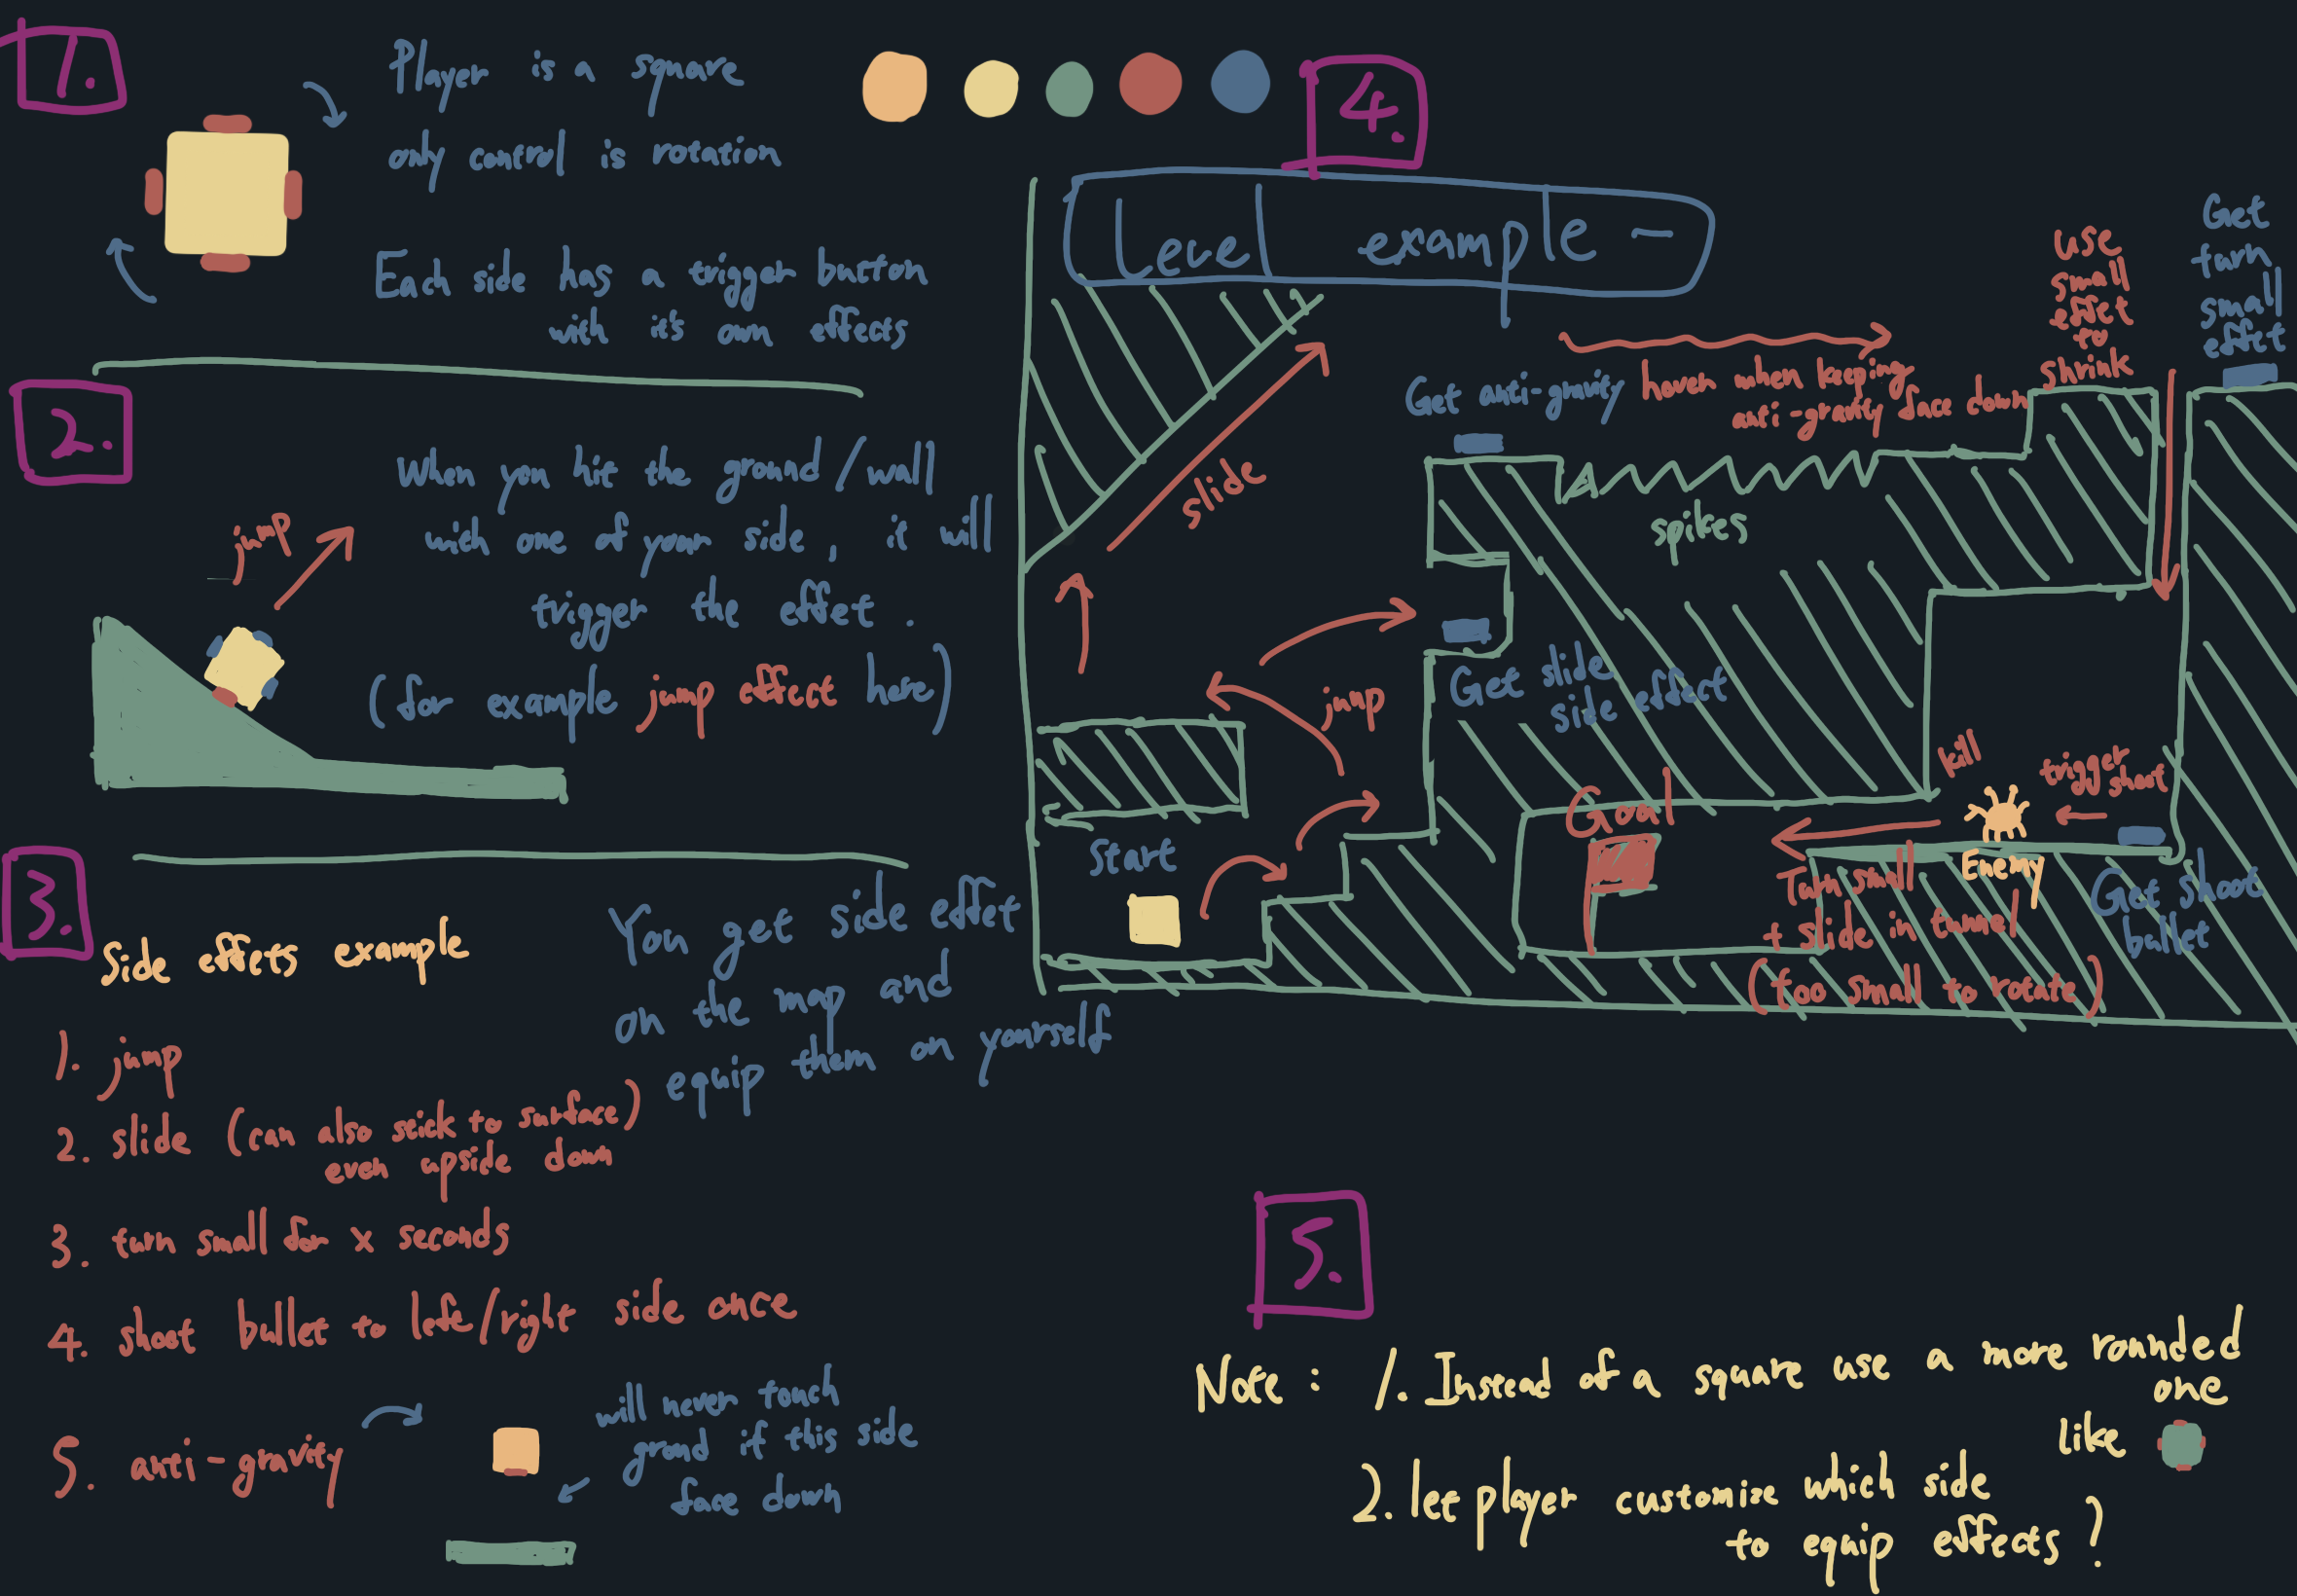 1.
Player is a square
only control is rotation
Each side has a trigger button
with it's own effects
2.
When you hit the ground/wall
with one of your side, it will
trigger the effet.
(for example jump effect here)
jmp
3.
Side effets example
You get side effet
on the map and
equip them on yourself
1. jimp
2. slide (can also stick to surface)
even upside down
3. turn small for x seconds
4. shoot bullet to left/right side once
5. anti-gravity
will never touch
grond if this side
face down
4.
Level example -
slide
Get anti-gravity
hover when keeping
anti-granty face down
use
small
effet
to
shrink
Get
turn
small
effet
spikes
Get slide
side effect
jmp
Start
Goal
kill
trigger
shoot
Enemy
Get shoot
bullet
Turn small
+ slide in tunnel
(too small to rotate)
5.
Note: 1. Instead of a square use a more rounded
one
like
2. let player customize which side
to equip effects?